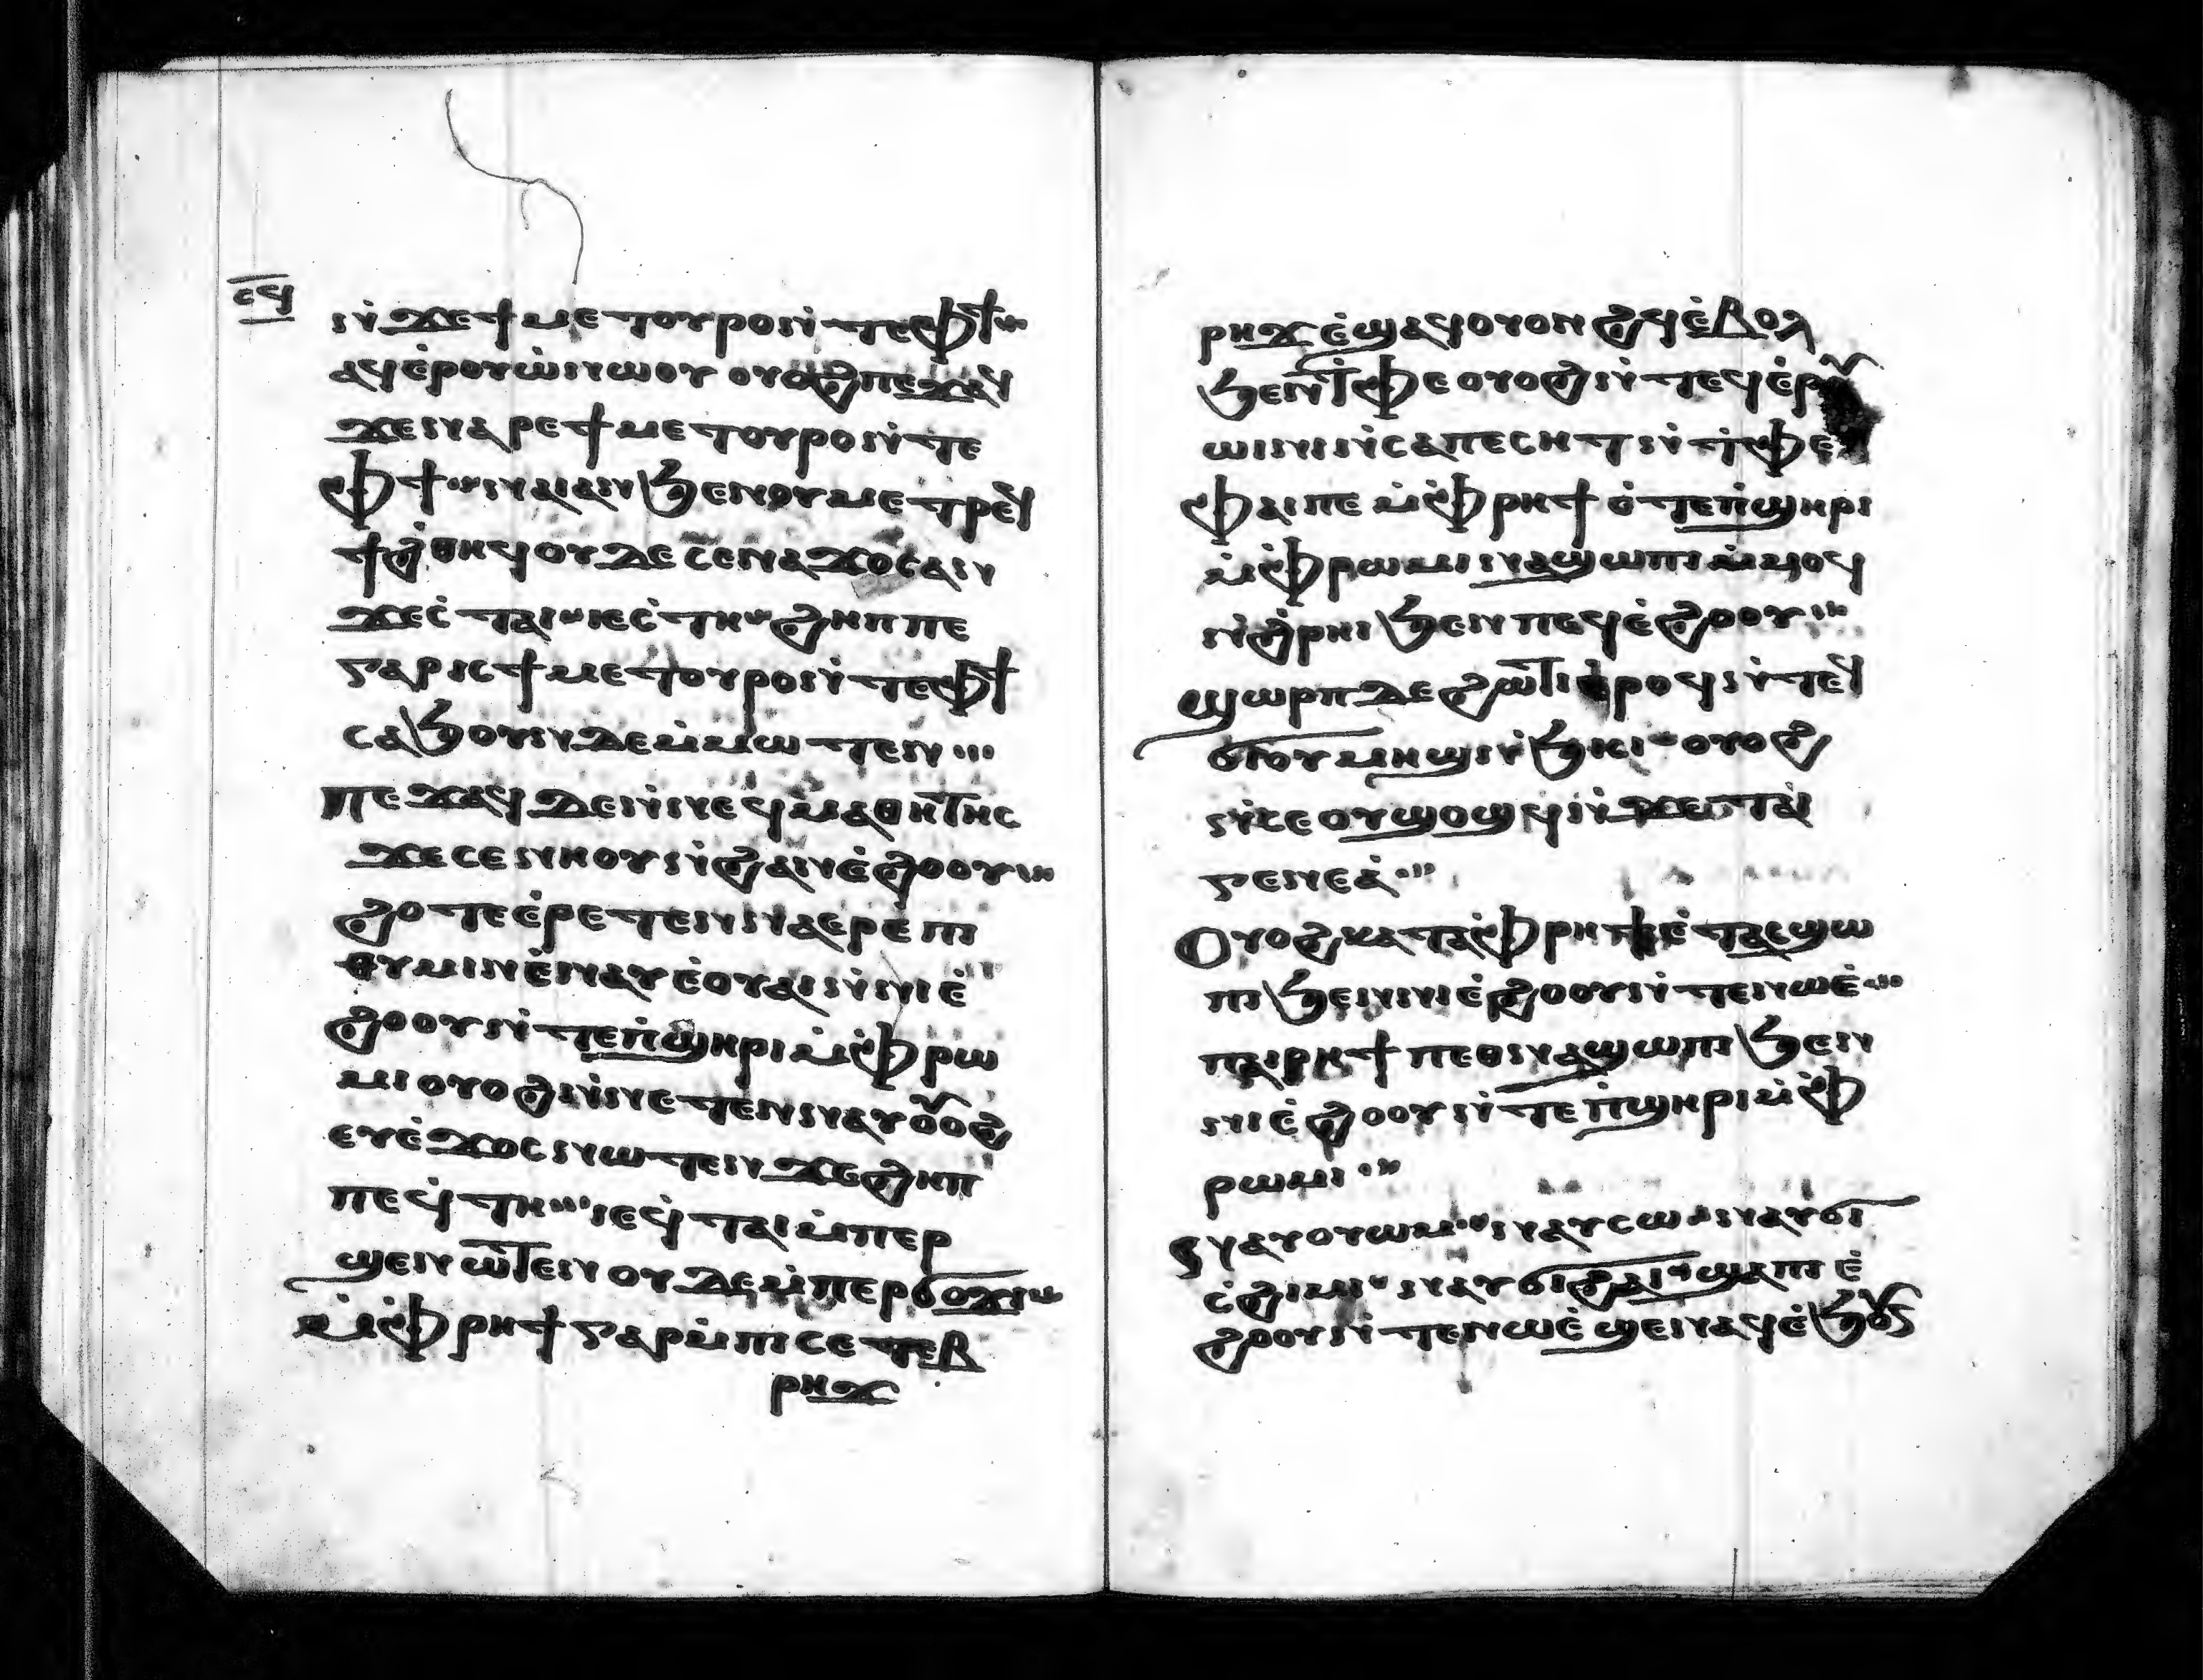 ⲥϥ
ⲛ̇ϫⲉϯⲙⲉⲧⲟⲩⲣⲟⲛ̇ⲧⲉⲫϯ⁘
ⲁϥⲉ̇ⲣⲟⲩⲱ̇ⲛⲱⲟⲩ ⲟⲩⲟϩⲡⲉϫⲁϥ
ϫⲉⲛⲁⲣⲉϯⲙⲉⲧⲟⲩⲣⲟⲛ̇ⲧⲉ
ⲫϯ⁘ⲛⲁⲓⲁⲛϧⲉⲛⲟⲩⲙⲉⲧⲣⲉϥ
ϯϩ̇ⲑⲏϥ ⲟⲩⲇⲉⲥⲉⲛⲁϫⲟⲥⲁⲛ
ϫⲉⲥ̇ⲧⲁⲓ⁘ⲓⲉⲥ̇ⲧⲏ⁘ϩⲏⲡⲡⲉ
ⲅⲁⲣⲓⲥϯⲙⲉⲧⲟⲩⲣⲟⲛ̇ⲧⲉⲫϯ
ⲥⲁϧⲟⲩⲛⲇⲉⲙ̇ⲙⲱⲧⲉⲛ⁘
ⲡⲉϫⲁϥⲇⲉⲛ̇ⲛⲉϥⲙⲁⲑⲏⲧⲏⲥ
ϫⲉⲥⲉⲛⲏⲟⲩⲛ̇ϩⲁⲛⲉ̇ϩⲟⲟⲩ⁘
ϩⲟⲧⲉⲉ̇ⲣⲉⲧⲉⲛⲛⲁⲉⲣⲉ̇ⲡⲓ
ⲑⲩⲙⲓⲛⲉ̇ⲛⲁⲩⲉ̇ⲟⲩⲁⲓⲛ̇ⲛⲓⲉ̇
ϩⲟⲟⲩⲛ̇ⲧⲉⲡ̇ϣⲏⲣⲓⲙ̇ⲫⲣⲱ
ⲙⲓ ⲟⲩⲟϩⲛ̇ⲛⲉⲧⲉⲛⲛⲁⲩ ⲟⲩⲟϩ
ⲉⲩⲉ̇ϫⲟⲥⲛⲱⲧⲉⲛϫⲉϩⲏⲡ
ⲡⲉϥ̇ⲧⲏ⁘ⲓⲉϥ̇ⲧⲁⲓⲙ̇ⲡⲉⲣ
ϣⲉⲛⲱⲧⲉⲛ ⲟⲩⲇⲉⲙ̇ⲡⲉⲣϭⲟϫⲓ⁘
ⲙ̇ⲫⲣⲏϯⲅⲁⲣⲙ̇ⲡⲓⲥⲉⲧⲉⲃ
ⲣⲏϫ
ⲣⲏϫⲉ̇ϣⲁϥⲟⲩⲟⲛϩϥⲉ̇ⲃⲟⲗ
ϧⲉⲛⲧ̇ⲫⲉ ⲟⲩⲟϩⲛ̇ⲧⲉϥⲉ̇ⲣⲟⲩ
ⲱⲓⲛⲓⲛ̇ⲥⲁⲡⲉⲥⲏⲧⲛ̇ⲧ̇ⲫⲉ
ⲫⲁⲓⲡⲉ ⲙ̇ⲫⲣⲏϯ ⲟ̇ⲧⲉⲡ̇ϣⲏⲣⲓ
ⲙ̇ⲫⲣⲱⲙⲓⲛⲁϣⲱⲡⲓⲙ̇ⲙⲟϥ
ⲛ̇ϩ̇ⲣⲏⲓϧⲉⲛⲡⲉϥⲉ̇ϩⲟⲟⲩ⁘
ϣⲱⲣⲡⲇⲉϩⲱϯⲉ̇ⲣⲟϥⲛ̇ⲧⲉϥ
ϭⲓⲟⲩⲙⲏϣⲛ̇ϧⲓⲥⲓ⁘ⲟⲩⲟϩ
ⲛ̇ⲥⲉⲟⲩϣⲟϣϥⲛ̇ϫⲉⲧⲁⲓ
ⲅⲉⲛⲉⲁ̇⁘
Ⲟⲩⲟϩⲕⲁⲧⲁⲫ̇ⲣⲏϯⲉ̇ⲧⲁⲥϣⲱ
ⲡⲓϧⲉⲛⲛⲓⲉ̇ϩⲟⲟⲩⲛ̇ⲧⲉⲛⲱⲉ̇⁘
ⲡⲁⲓⲣⲏϯ ⲡⲉⲑⲛⲁϣⲱⲡⲓϧⲉⲛ
ⲛⲓⲉ̇ϩⲟⲟⲩⲛ̇ⲧⲉⲡ̇ϣⲏⲣⲓⲙ̇ⲫ
ⲣⲱⲙⲓ⁘
Ⲛⲁⲩⲟⲩⲱⲙ⁘ⲛⲁⲩⲥⲱ⁘ⲛⲁⲩϭⲓ
ⲥ̇ϩⲓⲙⲓ⁘ⲛⲁⲩϭⲓϩⲁⲓ⁘ϣⲁⲡⲓⲉ̇
ϩⲟⲟⲩⲛ̇ⲧⲉⲛⲱⲉ̇ ϣⲉⲛⲁϥⲉ̇ϧⲟⲩⲛ